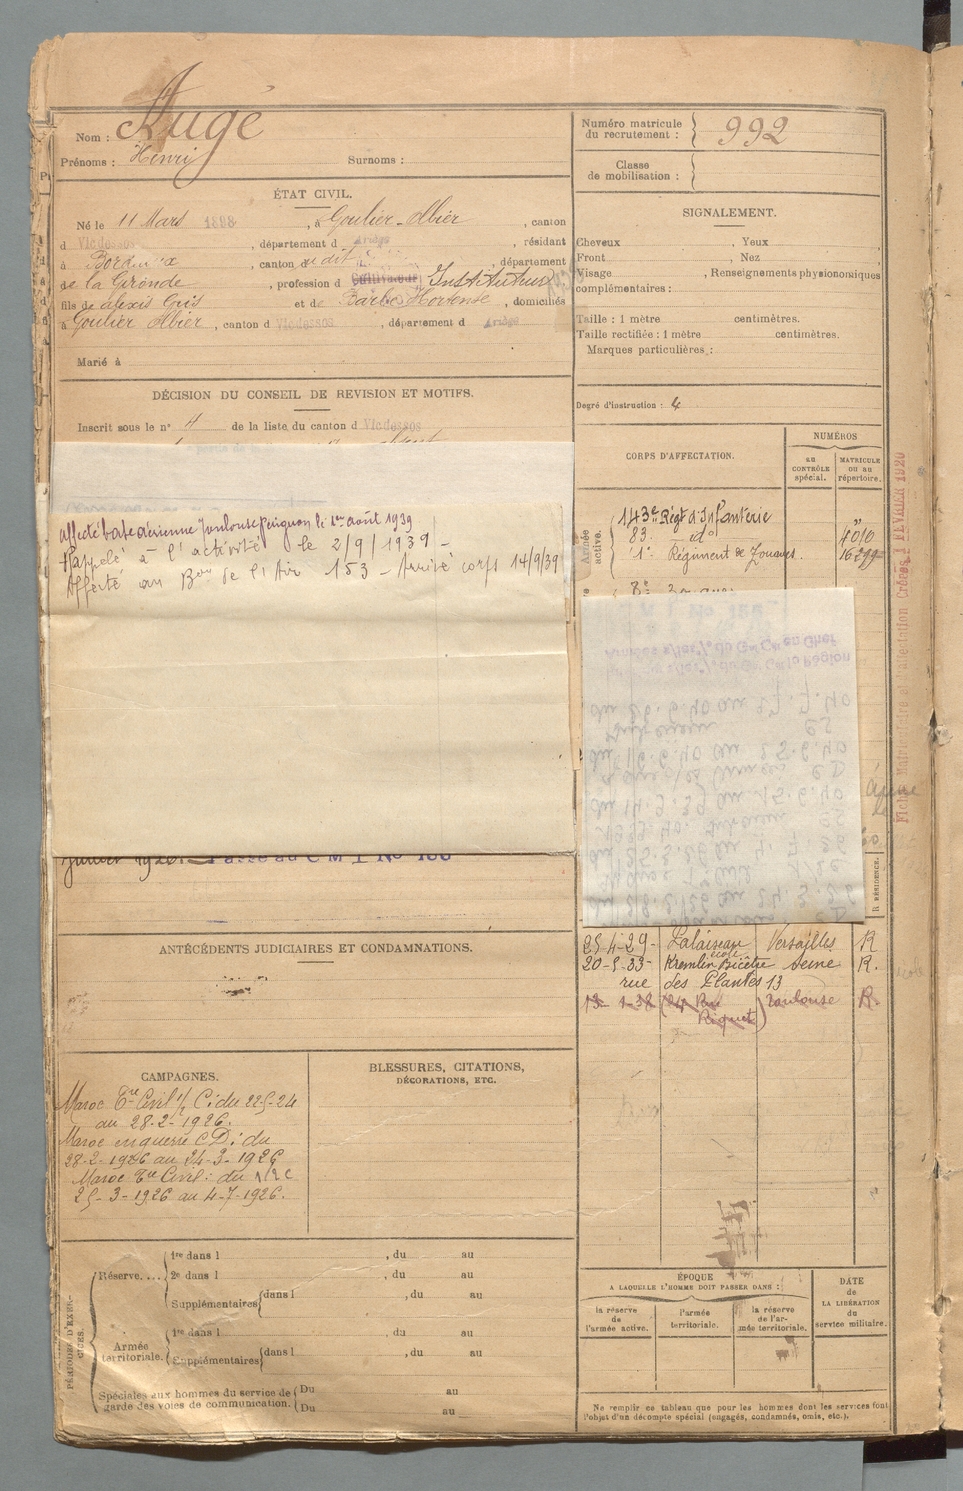 Nom : Augé
Prénoms : Henri Surnoms :
ÉTAT CIVIL.
Né le 11 Mars 1898, à Goulier-Olbier, canton
d Vicdessos, département d Ariège, résidant
à Bordeaux, canton dudit, département
de la Gironde, profession d Cultivateur Instituteur
fils de Alexis Cris et de Barbe Hortense, domiciliés
à Goulier Olbier, canton d Vicdessos, département d Ariège
Marié à
DÉCISION DU CONSEIL DE REVISION ET MOTIFS.
Inscrit sous le n° 4 de la liste du canton d Vicdessos
affecté base aérienne Toulouse Pérignon le 1er août 1939
Rappelé à l'activité le 2/9/1939 -
Affecté au Bon de l'Air 153 - Arrivé corps 14/9/39
Juillet 1926. Passé au C M I No 186
ANTÉCÉDENTS JUDICIAIRES ET CONDAMNATIONS.
CAMPAGNES.
Maroc Tre Civil 1/2 C: du 22-5-24
au 28-2-1926.
Maroc en guerre C D: du
28-2-1926 au 24-3-1926
Maroc Tre Civil: du 1/2 C
25-3-1926 au 4-7-1926.
BLESSURES, CITATIONS,
DÉCORATIONS, ETC.
PÉRIODES D'EXERCICES.
Réserve....
1re dans l , du au
2e dans l , du au
Supplémentaires dans l , du au
Armée territoriale.
1re dans l , du au
Supplémentaires dans l , du au
Spéciales aux hommes du service de
garde des voies de communication.
Du au
Du au
Numéro matricule
du recrutement : 992
Classe
de mobilisation :
SIGNALEMENT.
Cheveux , Yeux
Front , Nez
Visage , Renseignements physionomiques
complémentaires :
Taille : 1 mètre centimètres.
Taille rectifiée : 1 mètre centimètres.
Marques particulières :
Degré d'instruction : 4
CORPS D'AFFECTATION.
NUMÉROS
au
CONTRÔLE
spécial.
MATRICULE
ou au
répertoire.
Armée active.
143e Régt d'Infanterie
83. id° 4010
1er Régiment de Zouaves. 16299
8e Zouaves
R RÉSIDENCE.
25-4-29- Palaiseau Versailles R
école
20-5-33- Kremlin Bicêtre Seine R.
rue des Plantes 13
13-1-38 (24 Rue Riquet) Toulouse R.
ÉPOQUE
A LAQUELLE L'HOMME DOIT PASSER DANS :
la réserve
de
l'armée active.
l'armée
territoriale.
la réserve
de l'ar-
mée territoriale.
DATE
de
LA LIBÉRATION
du
service militaire.
Ne remplir ce tableau que pour les hommes dont les services font
l'objet d'un décompte spécial (engagés, condamnés, omis, etc.).
Fiches Matriculaire et d'affectation Créées FÉVRIER 1920